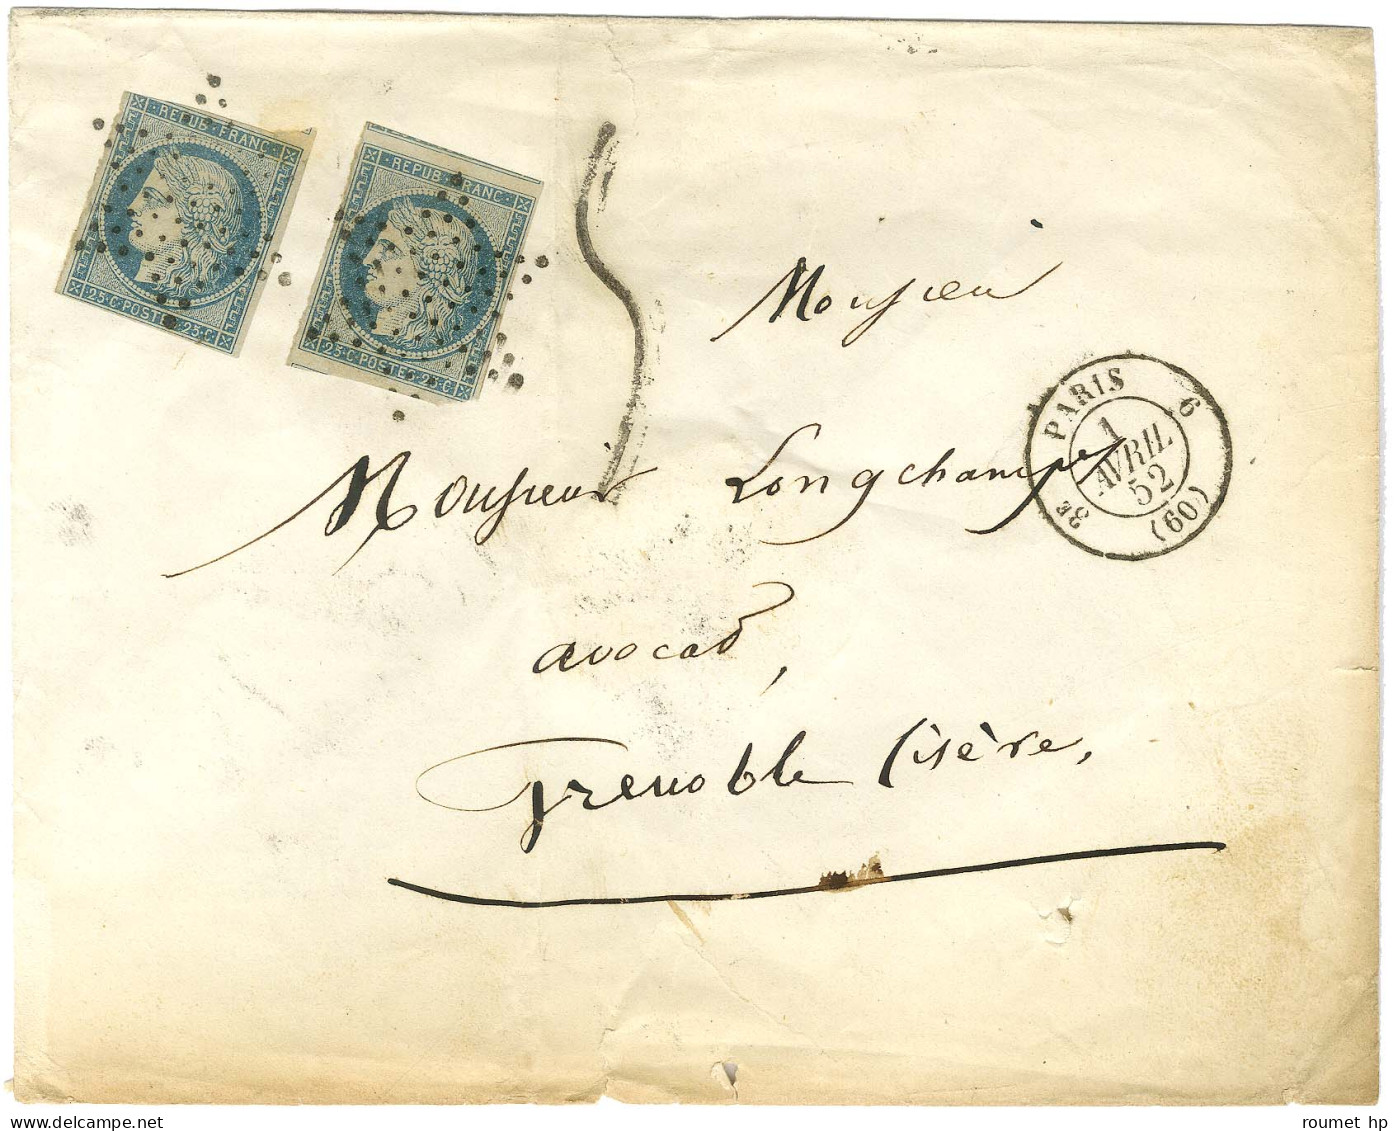 REPUB·FRANC·
25·C·POSTES·25·C
REPUB·FRANC·
25·C·POSTES·25·C
5
Monsieur
Monsieur Longchamps
avocat,
Grenoble (isère,
PARIS 6
3E (60)
1
AVRIL
52
roumet hp